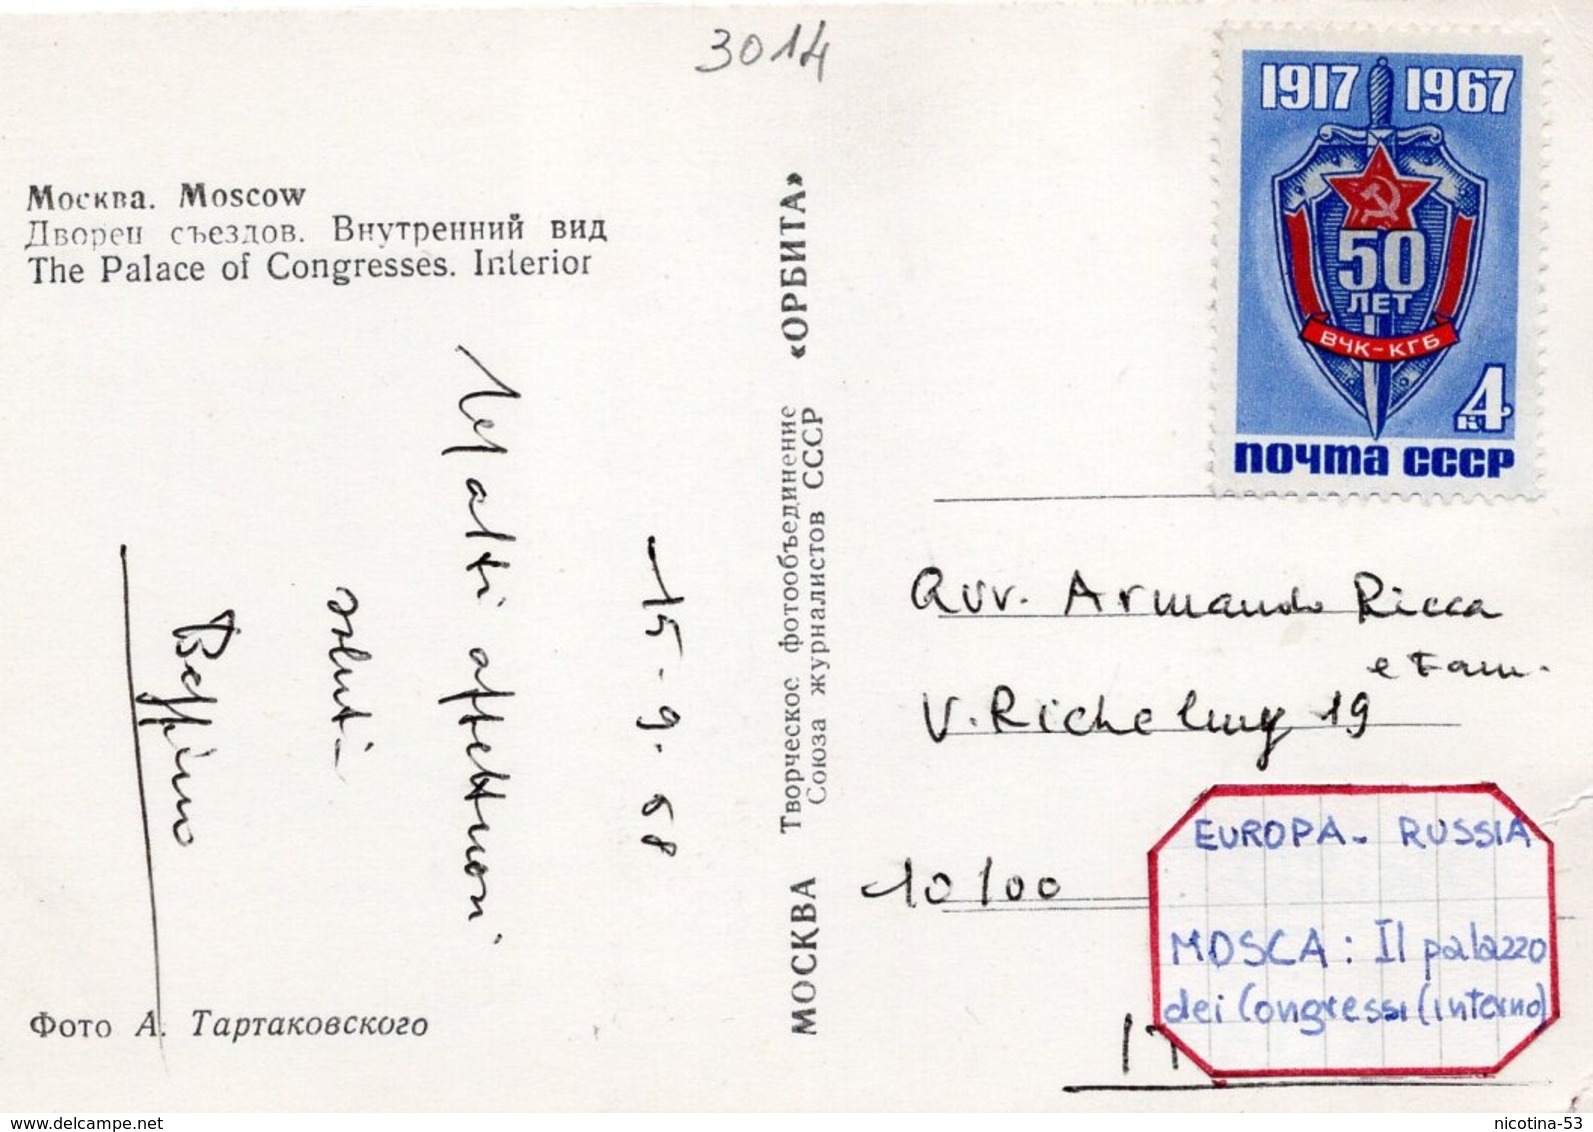 3014
1917 1967
50
ЛЕТ
ВЧК-КГБ
4
к
ПОЧТА СССР
Москва. Moscow
Дворец съездов. Внутренний вид
The Palace of Congresses. Interior
15-9-68
affettuosi
saluti
Beppino
Фото А. Тартаковского
МОСКВА Творческое фотообъединение «ОРБИТА»
Союза журналистов СССР
Avv. Armando Ricca
e Fam.
V. Richelmy 19
10100
EUROPA - RUSSIA
MOSCA: Il palazzo
dei Congressi (interno)
www.delcampe.net
nicotina-53